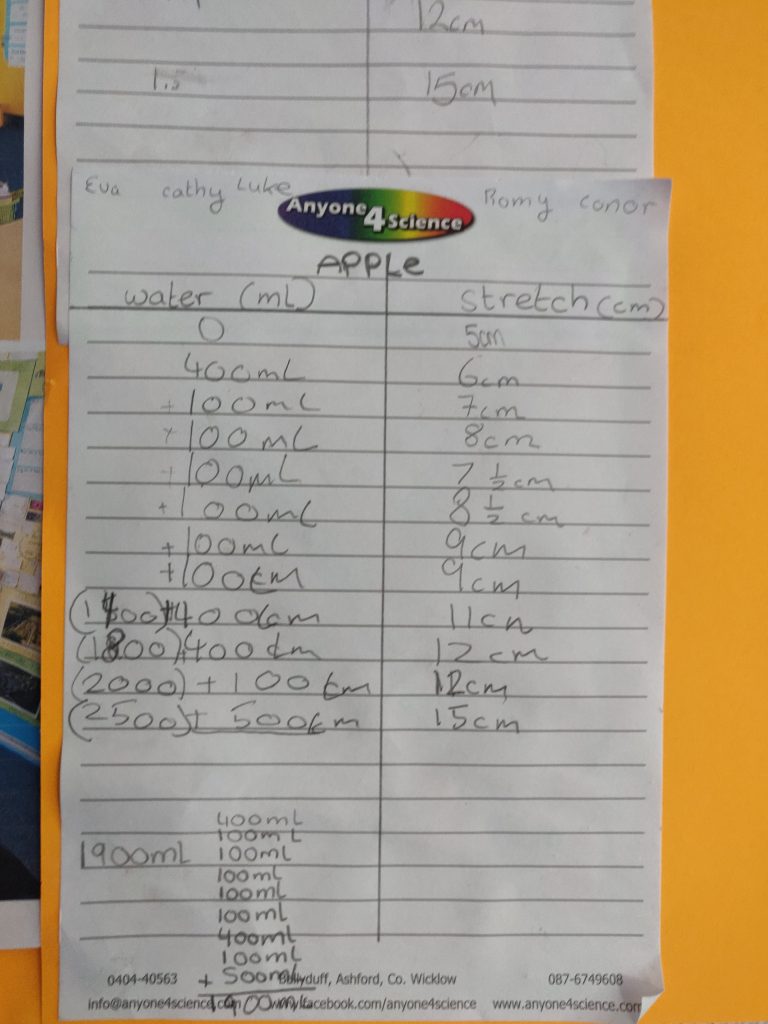 12cm
1.5 15cm
Eva cathy Luke Romy conor
Anyone 4 Science
APPLe
water (mL) stretch (cm)
0 5cm
400mL 6cm
+100mL 7cm
+100mL 8cm
+100mL 7 ½ cm
+100mL 8 ½ cm
+100mL 9cm
+100cm 9cm
(1400)+400cm 11cm
(1800)+400cm 12cm
(2000) + 100cm 12cm
(2500)+ 500cm 15cm
400mL
100mL
1900mL 100mL
100mL
100mL
100mL
400mL
100mL
+ 500mL
0404-40563 Ballyduff, Ashford, Co. Wicklow 087-6749608
1900mL
info@anyone4science.com www.facebook.com/anyone4science www.anyone4science.com